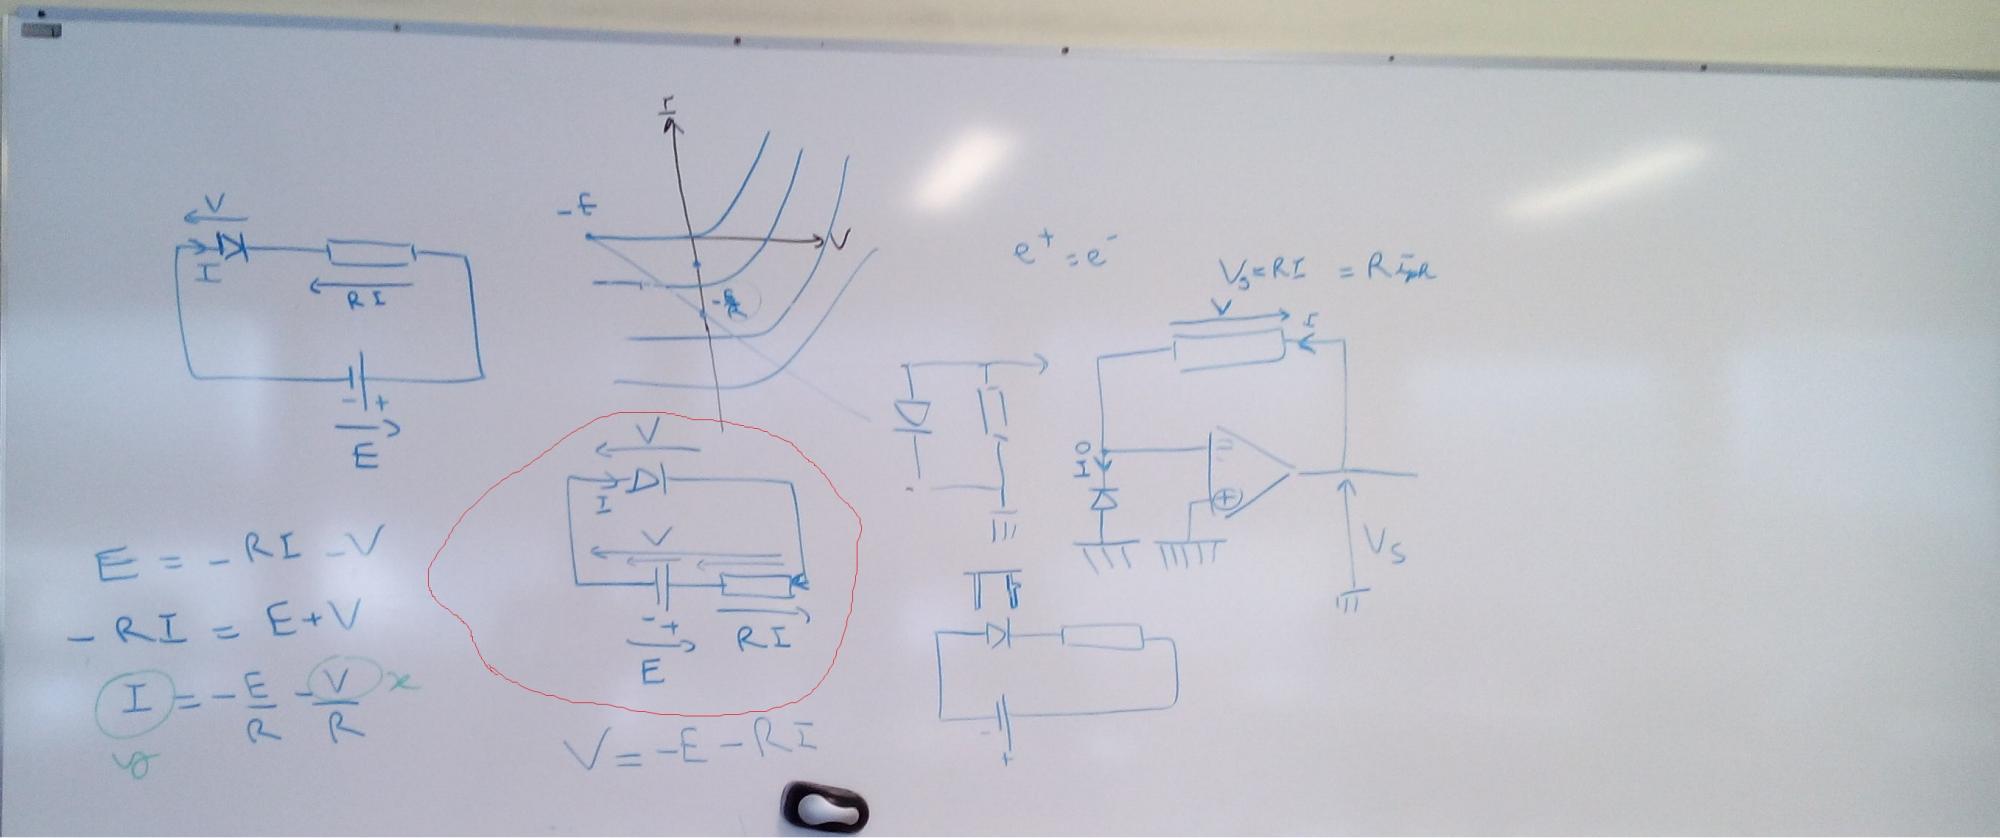 V
I
RI
- +
E
E = -RI -V
-RI = E+V
I = -E/R - V/R x
y
I
-E
V
-E/R
V
I
V
- +
E
RI
V = -E - RI
e⁺ = e⁻
Vs = RI = R
V
I
0
I
-
+
Vs
-
+